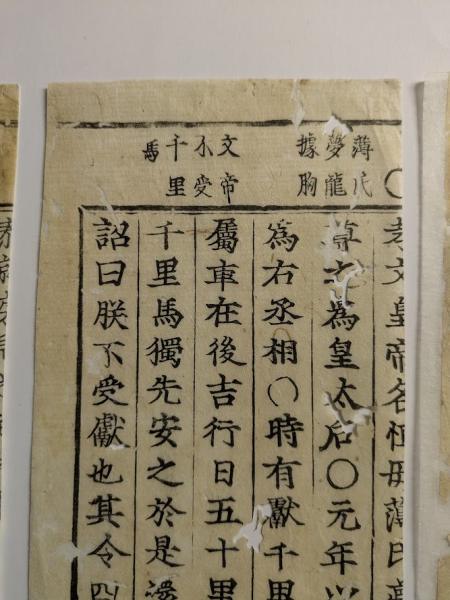 ○
薄氏
夢龍
據胸
文帝
不受
千里
馬
孝文皇帝名恒母薄氏夢
尊之為皇太后○元年以
為右丞相○時有獻千里
屬車在後吉行日五十里
千里馬獨先安之於是還
詔曰朕不受獻也其令四